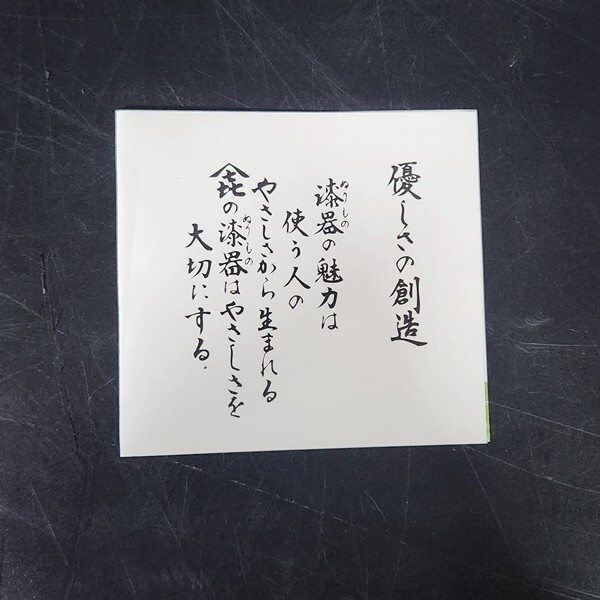 優しさの創造
漆器の魅力は
ぬりもの
使う人の
やさしさから生まれる
の漆器はやさしさを
ぬりもの
大切にする.